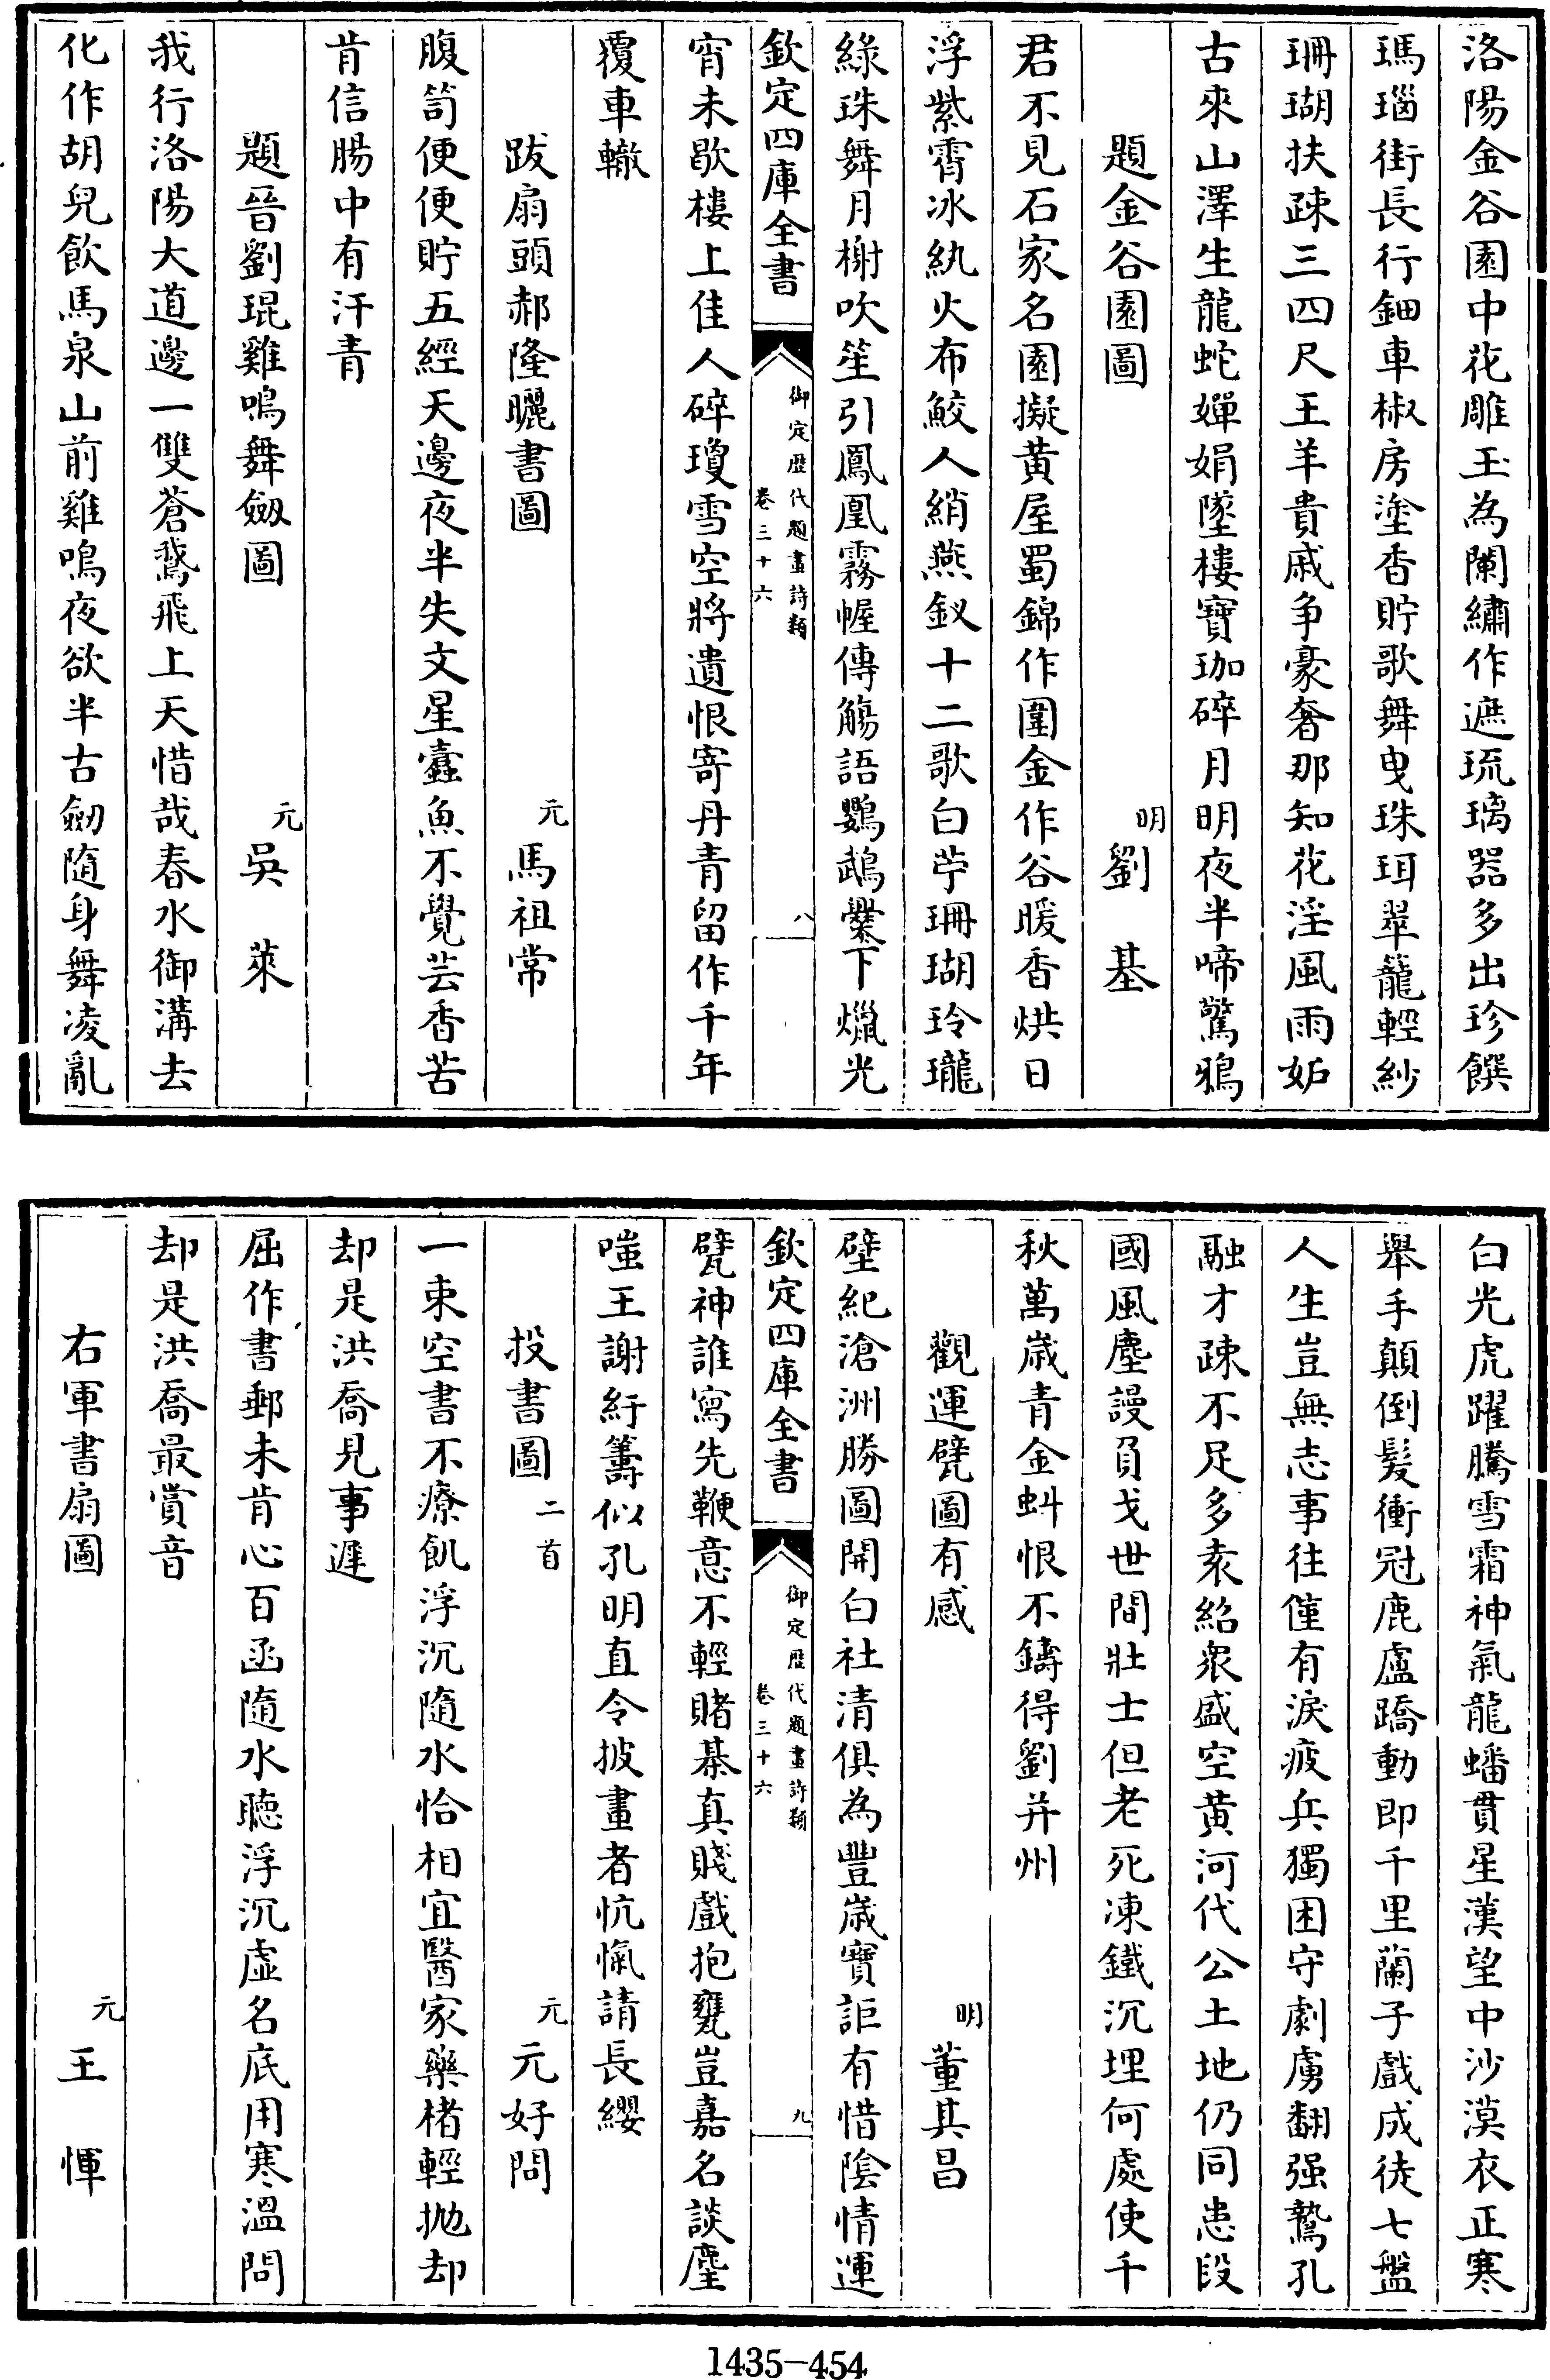 洛陽金谷園中花雕玉為闌繡作遮琉璃器多出珍饌
瑪瑙街長行鈿車椒房塗香貯歌舞曳珠珥翠籠輕紗
珊瑚扶疎三四尺王羊貴戚争豪奢那知花淫風雨妬
古來山澤生龍蛇嬋娟墜樓寶珈碎月明夜半啼驚鴉
題金谷園圖
明
劉基
君不見石家名園擬黄屋蜀錦作圍金作谷暖香烘日
浮紫霄冰紈火布鮫人綃燕釵十二歌白苧珊瑚玲瓏
綠珠舞月榭吹笙引鳳凰霧幄傳觴語鸚鵡爨下爉光
欽定四庫全書
御定歷代題畫詩類
卷三十六
八
宵未歇樓上佳人碎瓊雪空將遺恨寄丹青留作千年
覆車轍
跋扇頭郝隆曬書圖
元
馬祖常
腹笥便便貯五經天邊夜半失文星蠹魚不覺芸香苦
肯信腸中有汗青
題晉劉琨雞鳴舞劔圖
元
吳萊
我行洛陽大道邊一雙蒼鵞飛上天惜哉春水御溝去
化作胡兒飲馬泉山前雞鳴夜欲半古劒隨身舞凌亂
白光虎躍騰雪霜神氣龍蟠貫星漢望中沙漠衣正寒
舉手顛倒髮衝冠鹿盧蹻動即千里蘭子戲成徒七盤
人生豈無志事往僅有淚疲兵獨困守劇虜翻强鷙孔
融才疎不足多袁紹衆盛空黄河代公土地仍同患段
國風塵謾負戈世間壯士但老死凍鐵沉埋何處使千
秋萬歲青金蚪恨不鑄得劉并州
觀運甓圖有感
明
董其昌
壁紀滄洲勝圖開白社清俱為豐歲寶詎有惜陰情運
欽定四庫全書
御定歷代題畫詩類
卷三十六
九
甓神誰寫先鞭意不輕賭棊真賤戲抱甕豈嘉名談麈
嗤王謝紆籌似孔明直令披畫者忼愾請長纓
投書圖二首
元
元好問
一束空書不療飢浮沉隨水恰相宜醫家藥楮輕抛却
却是洪喬見事遲
屈作書郵未肯心百函隨水聴浮沉虛名底用寒溫問
却是洪喬最賞音
右軍書扇圖
元
王惲
1435-454